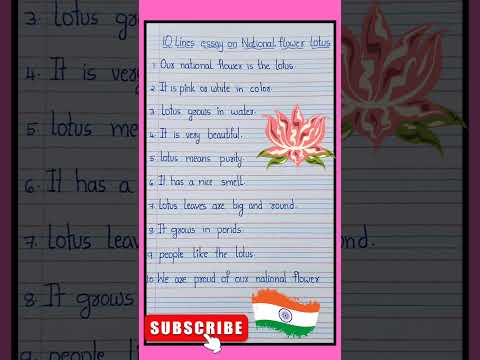 10 Lines essay on National flower Lotus
1. Our national flower is the lotus.
2. It is pink or white in color.
3. Lotus grows in water.
4. It is very beautiful.
5. Lotus means purity.
6. It has a nice smell.
7. Lotus leaves are big and round.
8. It grows in ponds.
9. people like the lotus.
10. We are proud of our national flower
SUBSCRIBE
3. Lotus gro
4. It is very
5. Lotus me
6. It has a
7. Lotus leav
nd.
8. It grows
9. people